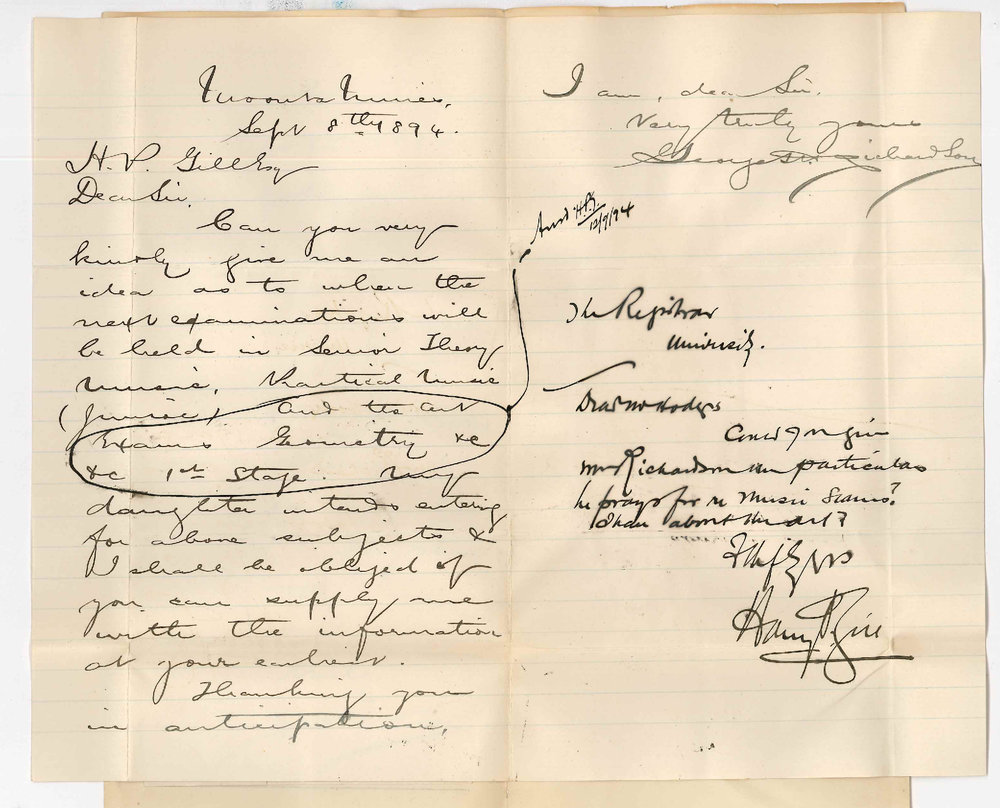 Moonta Mines,
Sept 8th 1894.
H. P. Gill Esq
Dear Sir,
Can you very
kindly give me an
idea as to when the
next examinations will
be held in Senior Theory
Music, Practical Music
(Junior) and the art
Exams Geometry &c
&c 1st Stage. My
daughter intends entering
for above subjects &
I shall be obliged if
you can supply me
with the information
at your earliest.
Thanking you
in anticipation,
I am, dear Sir.
Very truly yours
George Richardson
H.P.G.
12/9/94
The Registrar
University.
Dear Mr Hodges
Could you give
Mr Richardson the particulars
he prays for re Music Exams?
about the art?
Harry P. Gill